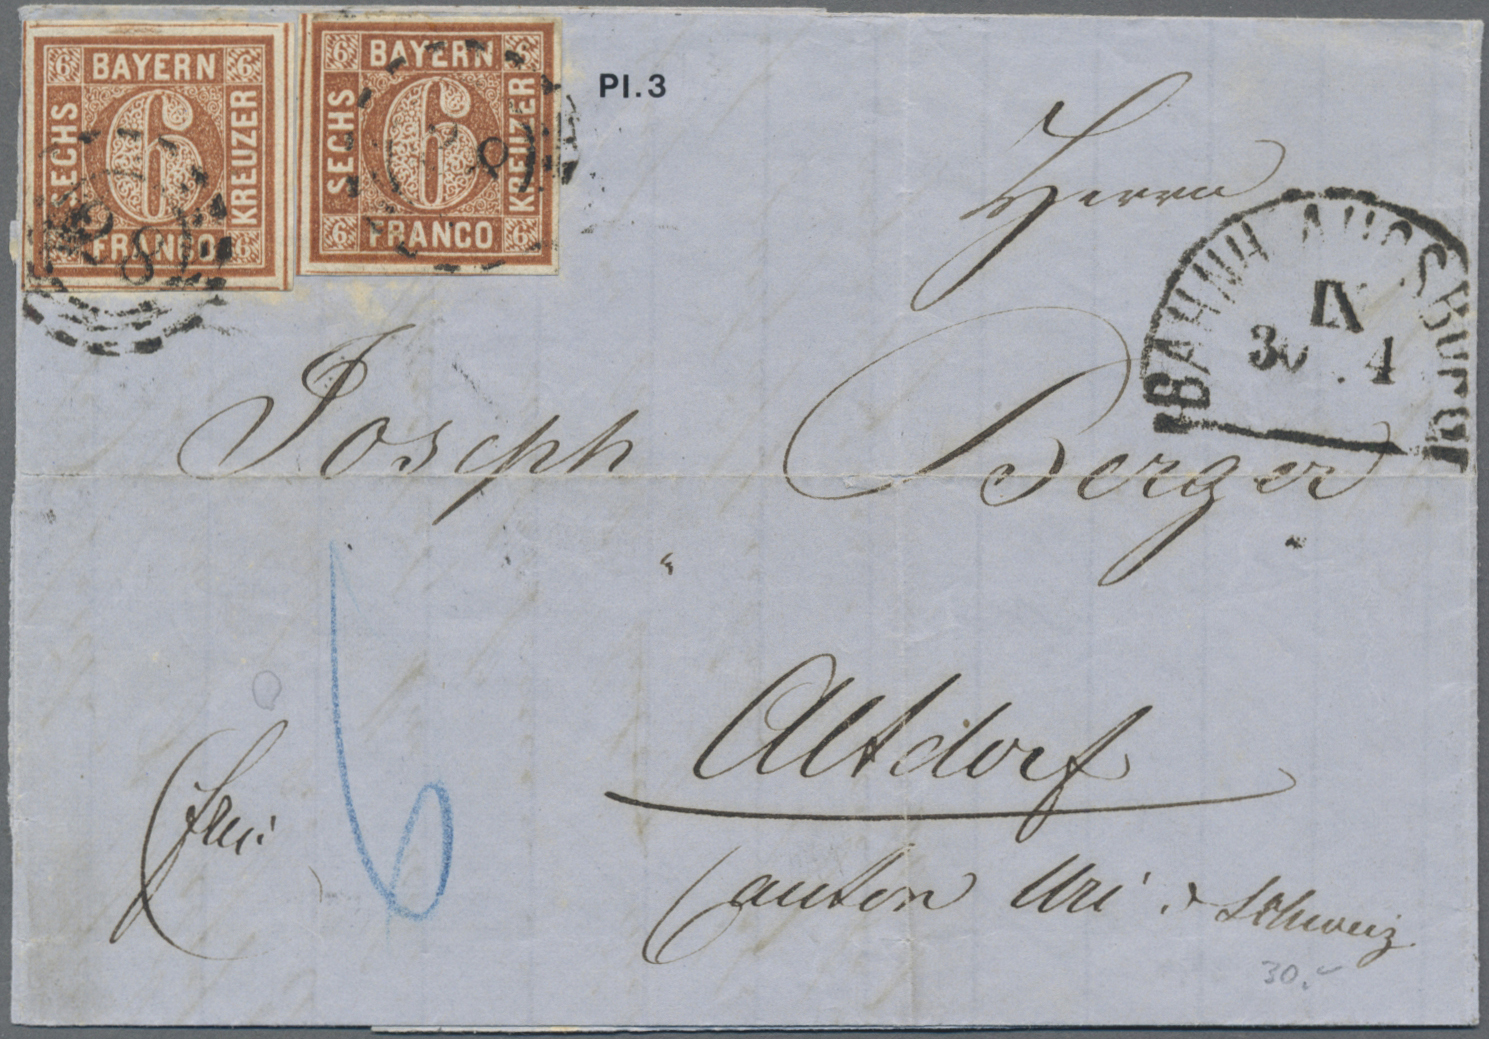 6 BAYERN 6
SECHS 6 KREUZER
6 FRANCO 6
28
6 BAYERN 6
SECHS 6 KREUZER
6 FRANCO 6
28
Pl.3
Herrn
BAHNH. AUGSBURG
IX
30 4
Joseph Berger
6
Altdorf
frei
Canton Uri . Schweiz
30.-